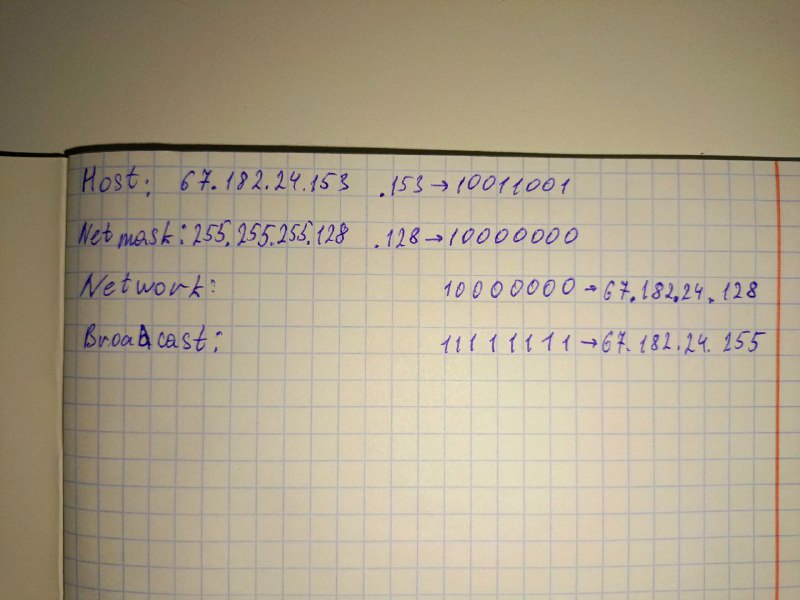 Host: 67.182.24.153 .153→10011001
Netmask: 255.255.255.128 .128→10000000
Network: 10000000→67.182.24.128
Broadcast: 11111111→67.182.24.255